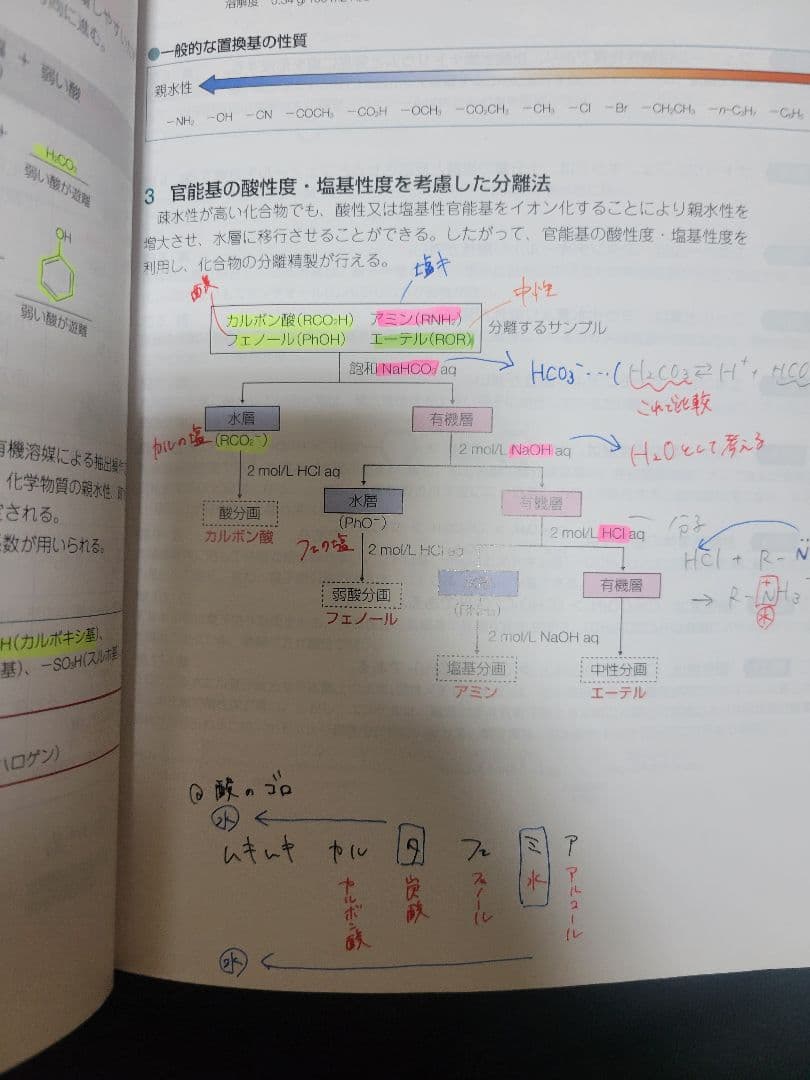 ●一般的な置換基の性質
親水性
－NH₂ －OH －CN －COCH₃ －CO₂H －OCH₃ －CO₂CH₃ －CH₃ －Cl －Br －CH₂CH₃ －n-C₃H₇
＋ 弱い酸
H₂CO₃
弱い酸が遊離
OH
弱い酸が遊離
3 官能基の酸性度・塩基性度を考慮した分離法
疎水性が高い化合物でも、酸性又は塩基性官能基をイオン化することにより親水性を
増大させ、水層に移行させることができる。したがって、官能基の酸性度・塩基性度を
利用し、化合物の分離精製が行える。
塩キ
中性
カルボン酸(RCO₂H) アミン(RNH₂)
フェノール(PhOH) エーテル(ROR)
分離するサンプル
飽和 NaHCO₃ aq
HCO₃⁻…(H₂CO₃⇄H⁺+HCO
これで比較
水層
(RCO₂⁻)
カルの塩
有機層
2 mol/L HCl aq
2 mol/L NaOH aq
H₂Oとして考える
酸分画
カルボン酸
水層
(PhO⁻)
フェの塩
有機層
2 mol/L HCl aq
2 mol/L HCl aq
HCl + R-N
→ R-NH₃
水
弱酸分画
フェノール
有機層
2 mol/L NaOH aq
塩基分画
アミン
中性分画
エーテル
有機溶媒による抽出
化学物質の親水性
される。
数が用いられる。
H(カルボキシ基)、
基)、－SO₃H(スルホ基
ハロゲン)
酸のゴロ
水 ←
ムキムキ カル タ フェ ミ ア
カルボン酸 炭酸 フェノール 水 アルコール
水 ←